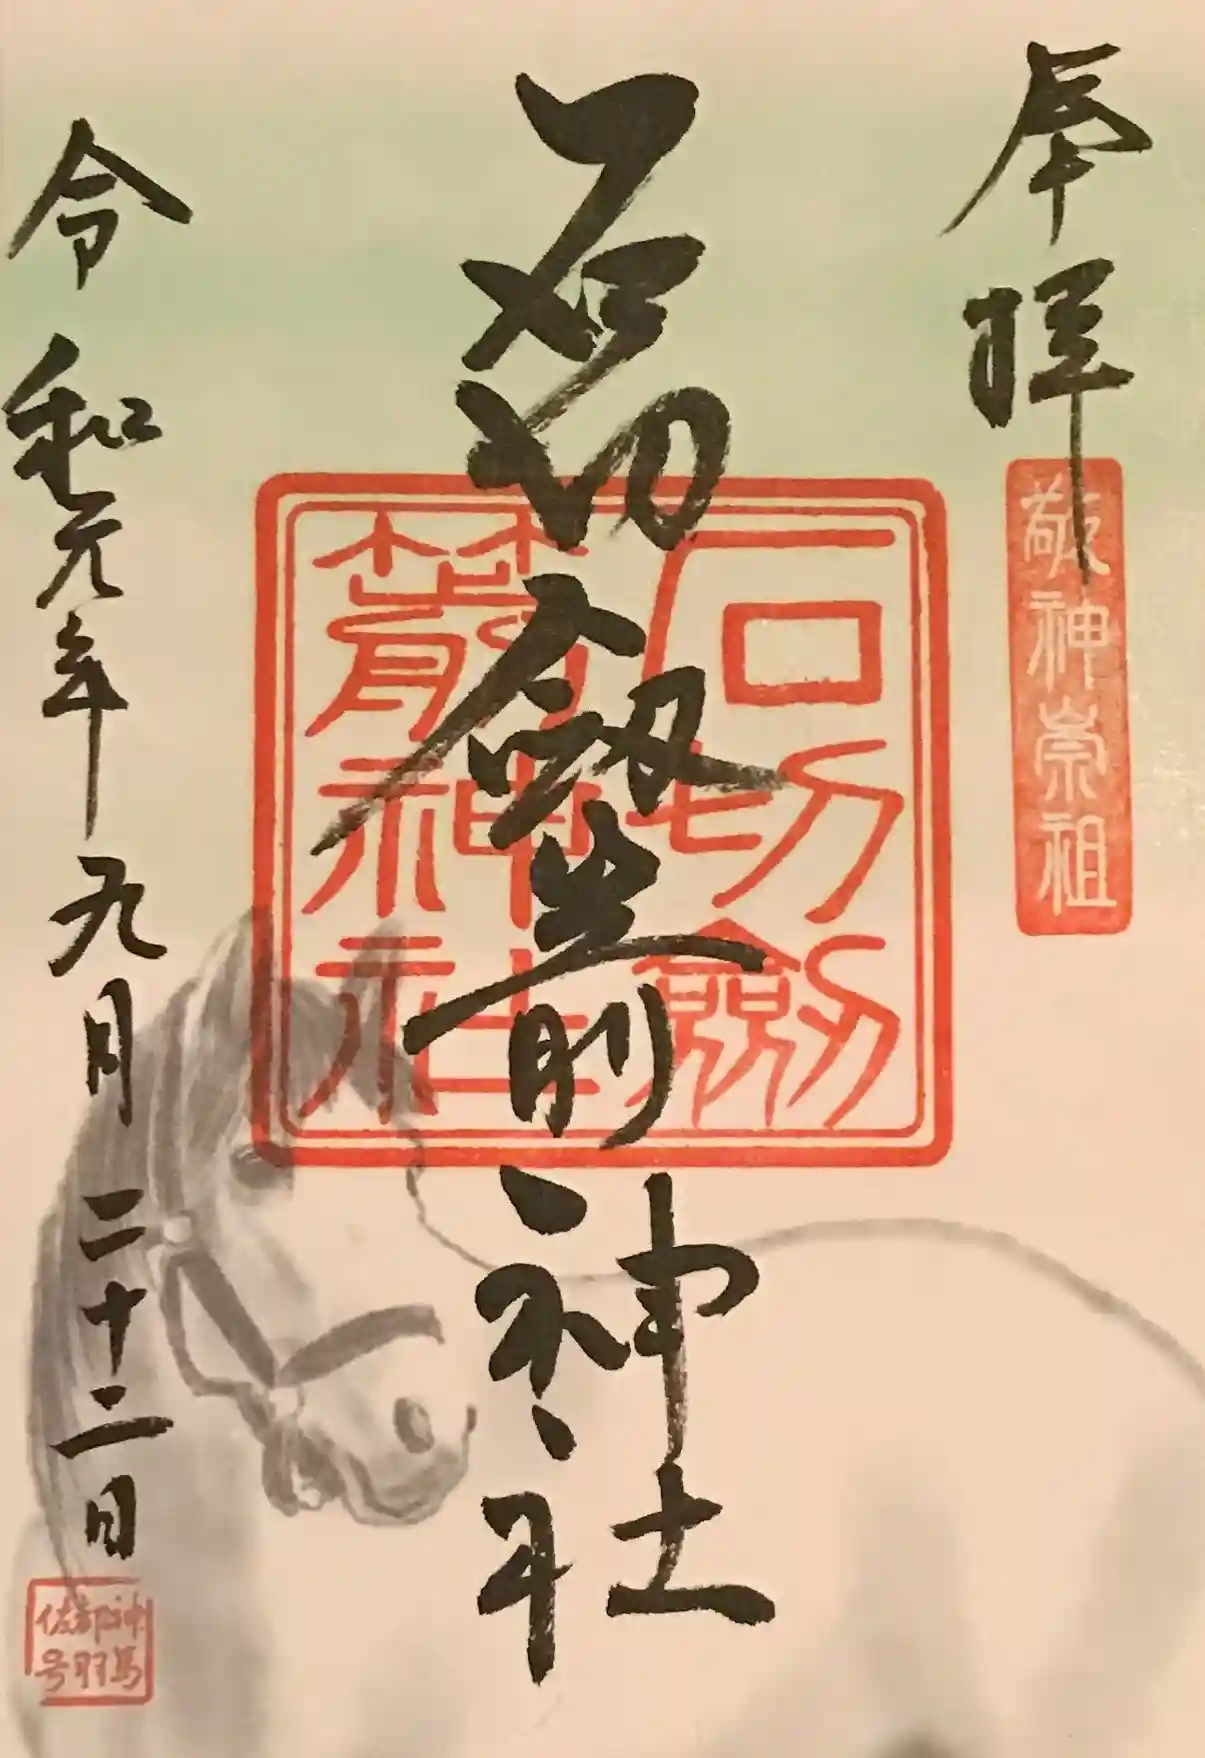 奉拝
敬神崇祖
石切劔箭神社
石切劔
箭神社
令和元年九月二十二日
神馬
都羽
佐号